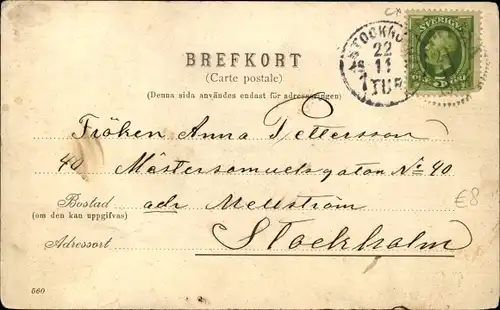 STOCKHO
22
11
1 TUR
SVERIGE
5
BREFKORT
(Carte postale)
(Denna sida användes endast för adresseringen)
Fröken Anna Pettersson
40 Mästersamuelsgatan No 40
Bostad adr Mellström
(om den kan uppgifvas)
Adressort Stockholm
560
€8